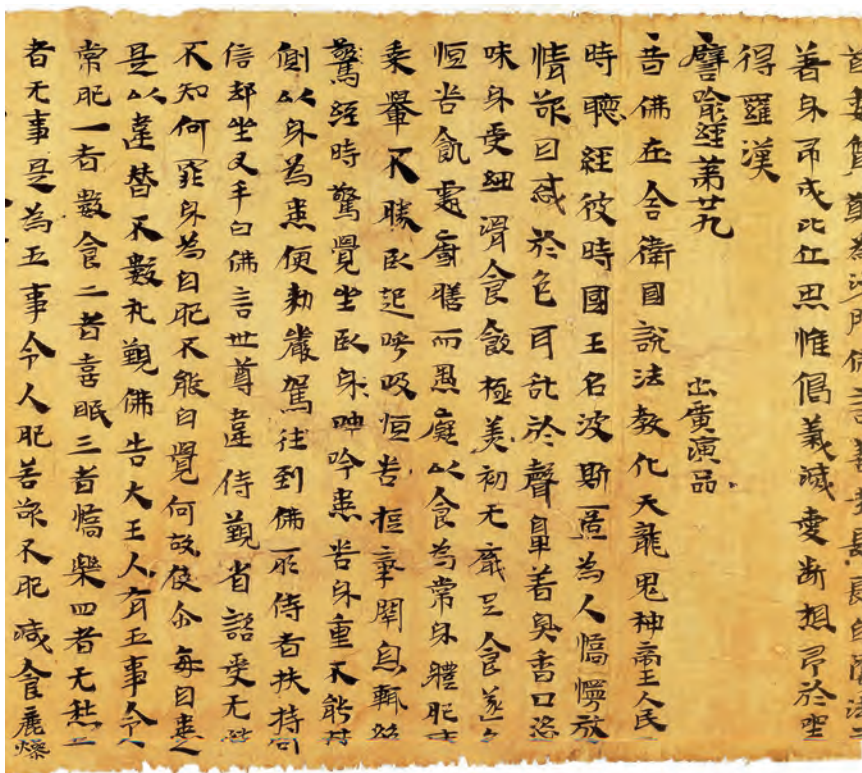 善身即成比丘思惟偈義滅愛断想即於
得羅漢
譬喻經第廿九 出廣演品
昔佛在舍衛國說法教化天龍鬼神帝王人民
時聽經彼時國王名波斯匿為人憍慢放
情欲目惑於色耳乱於聲鼻著臭香口恣
味身受細滑食飲極美初无厭足食遂
恒苦飢虛廚膳而愚癡以食為常身體肥
乘轝不勝臥起呼吸恒苦短氣閇息輒
驚經時驚覺坐臥身呻吟患苦身重不能
側以身為患便勑嚴駕往到佛所侍者扶持
信却坐叉手白佛言世尊違侍覲省諮受无
不知何罪身為自肥不能自覺何故使尒每自患之
是以違替不數礼覲佛告大王人有五事令
常肥一者數食二者喜眠三者憍樂四者无愁
者无事是為五事令人肥若欲不肥減食麁燥